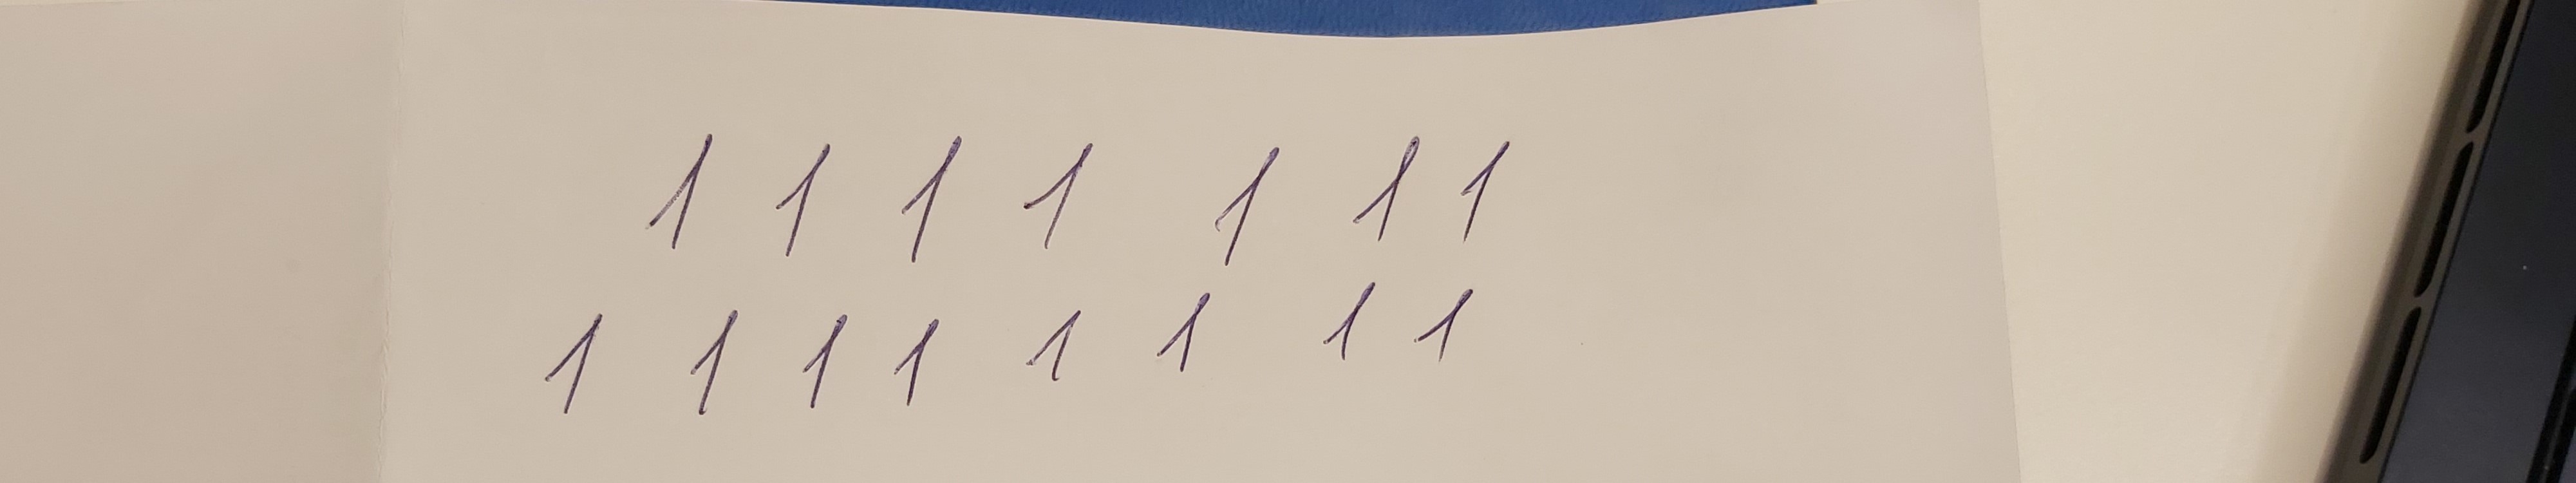 1 1 1 1 1 1 1
1 1 1 1 1 1 1 1